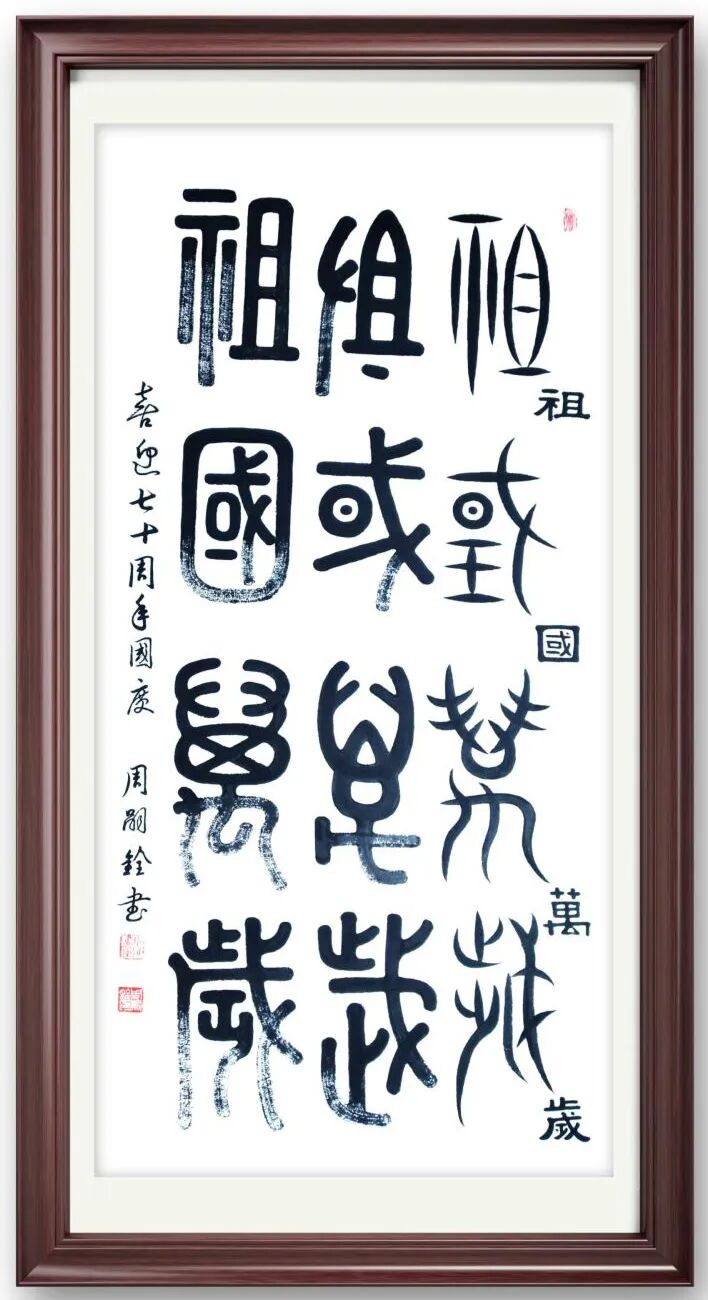 祖國萬歲
祖國萬歲
祖國萬歲
祖國萬歲
喜迎七十周年國慶 周嗣銓書